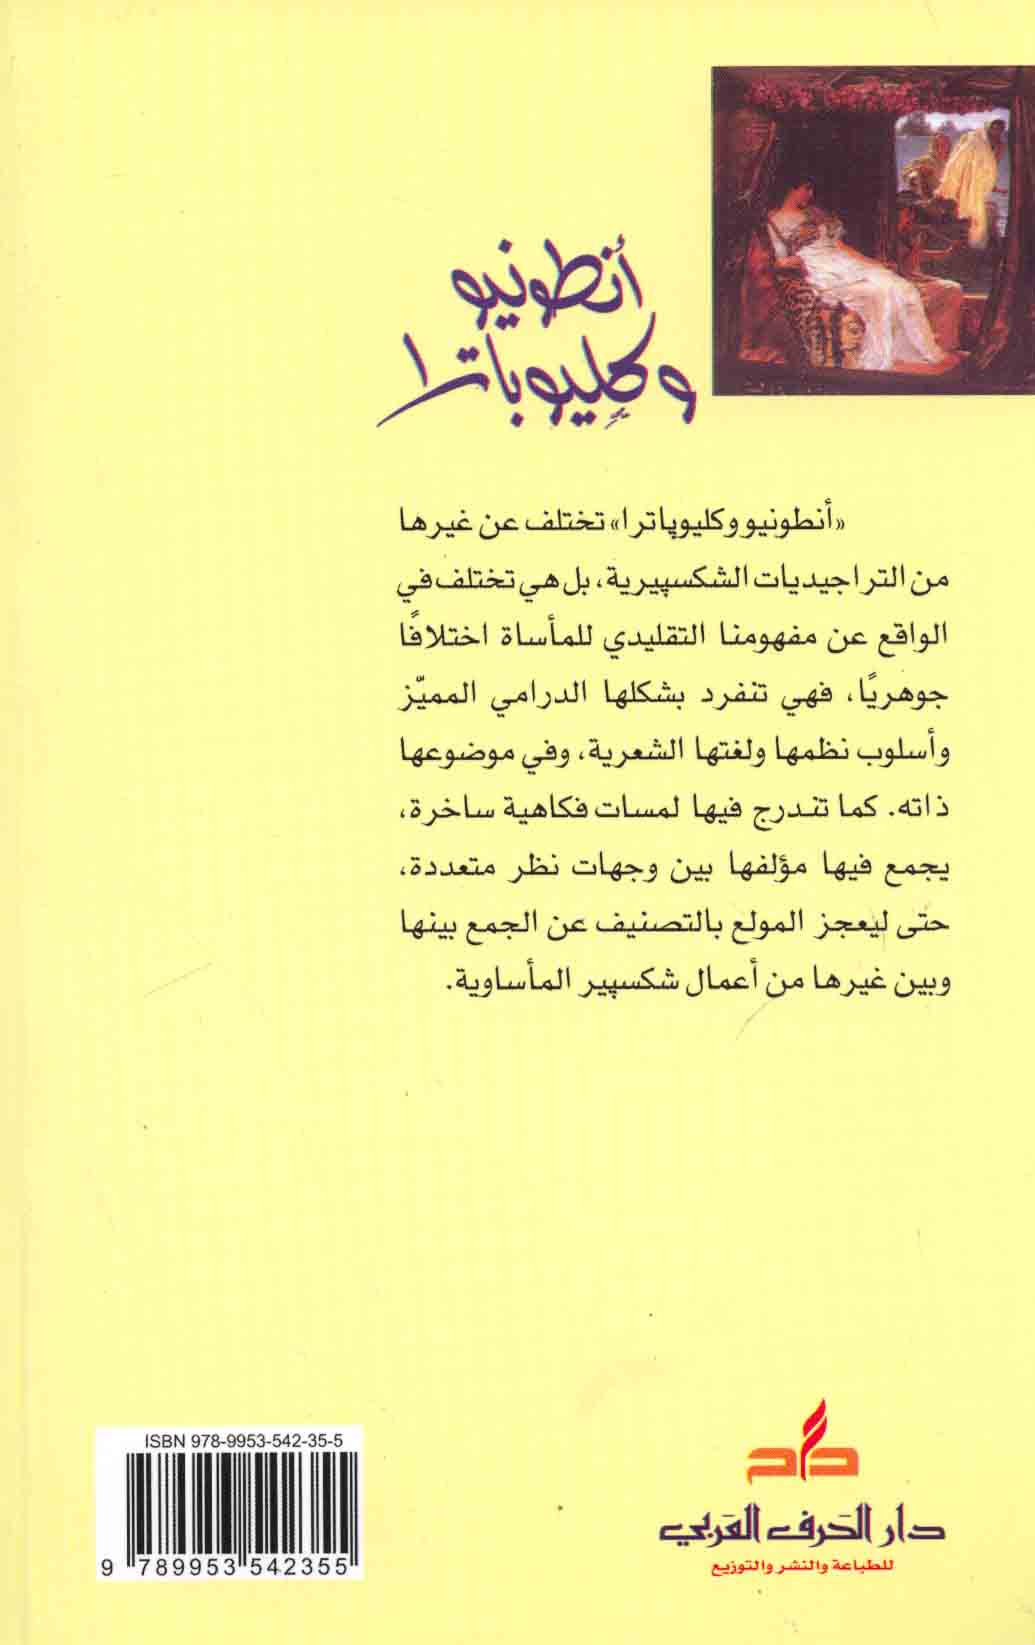 أنطونيو
وكليوباترا
«أنطونيو وكليوپاترا» تختلف عن غيرها
من التراجيديات الشكسپيرية، بل هي تختلف في
الواقع عن مفهومنا التقليدي للمأساة اختلافًا
جوهريًا، فهي تنفرد بشكلها الدرامي المميّز
وأسلوب نظمها ولغتها الشعرية، وفي موضوعها
ذاته. كما تندرج فيها لمسات فكاهية ساخرة،
يجمع فيها مؤلفها بين وجهات نظر متعددة،
حتى ليعجز المولع بالتصنيف عن الجمع بينها
وبين غيرها من أعمال شكسپير المأساوية.
ISBN 978-9953-542-35-5
9 789953 542355
دار الحَرف العَربي
للطباعة والنشر والتوزيع